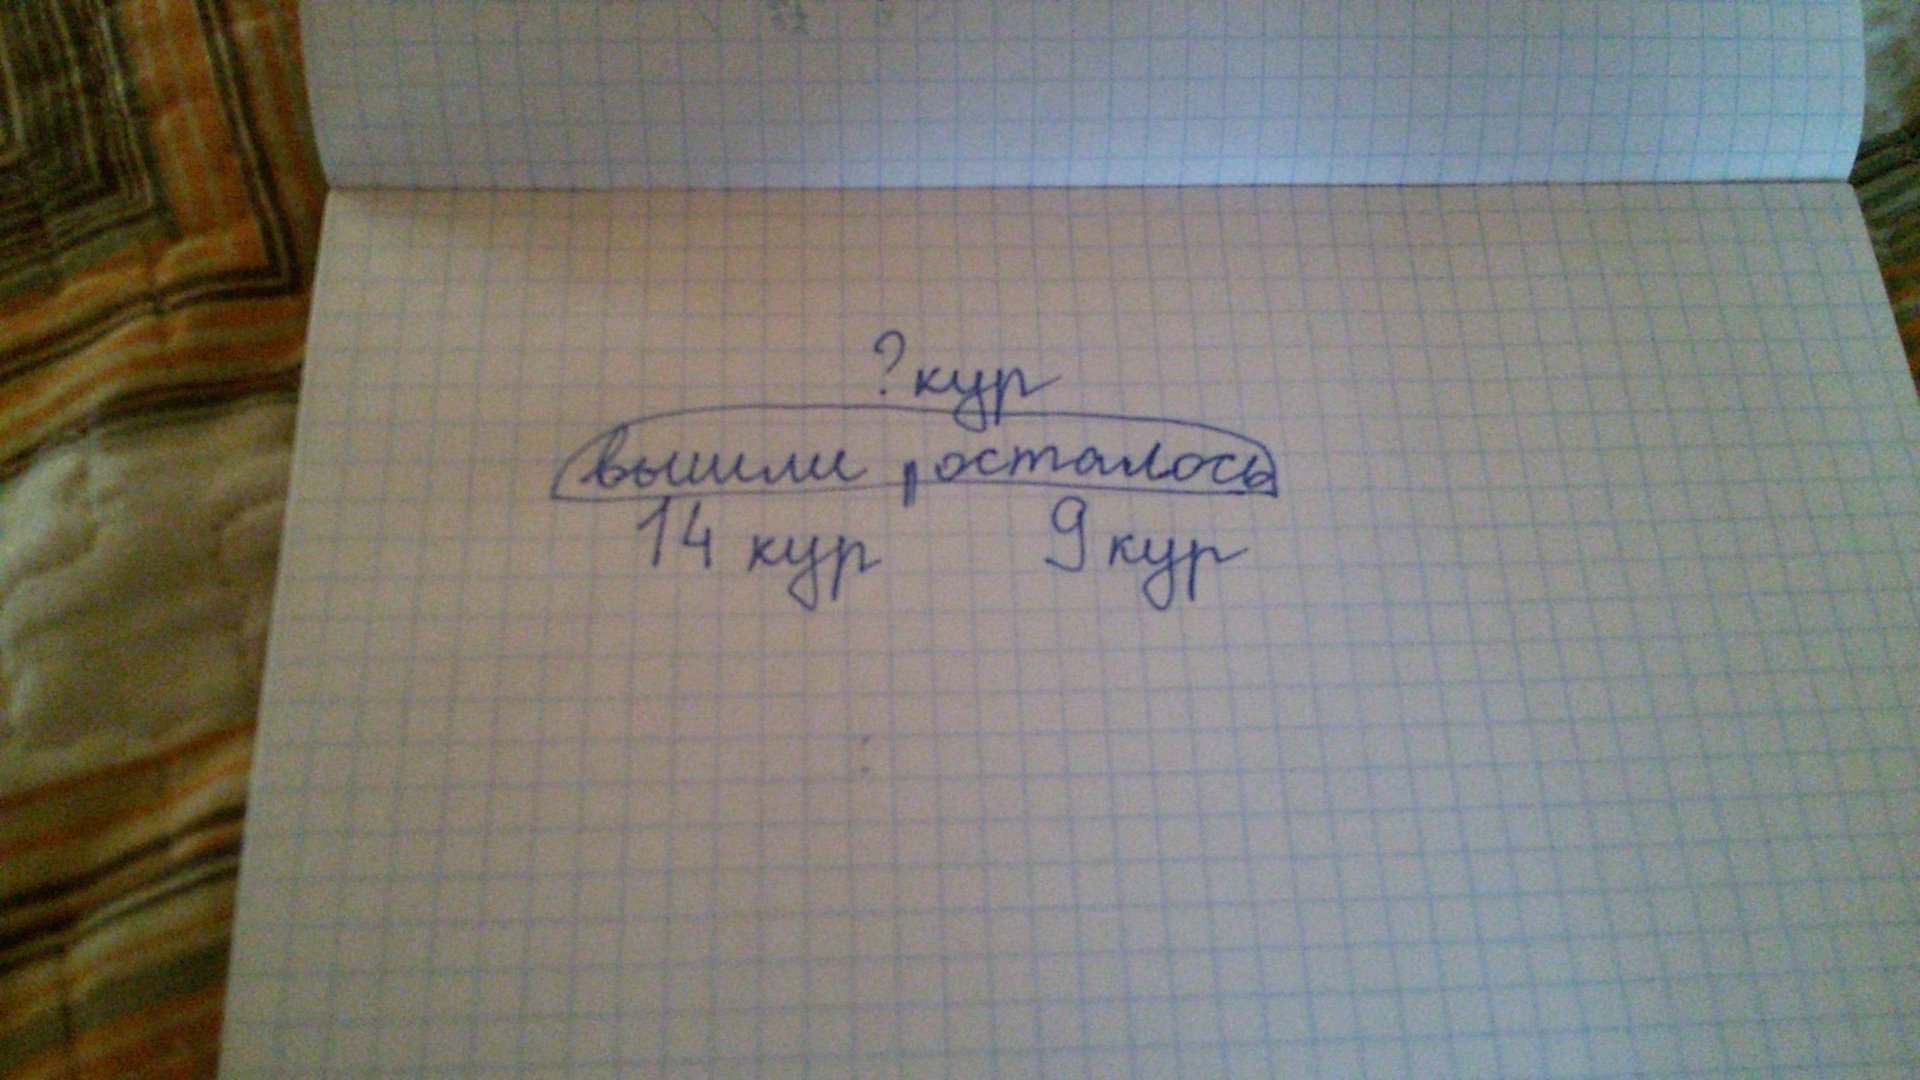 ?кур
вышли осталось
14 кур 9 кур